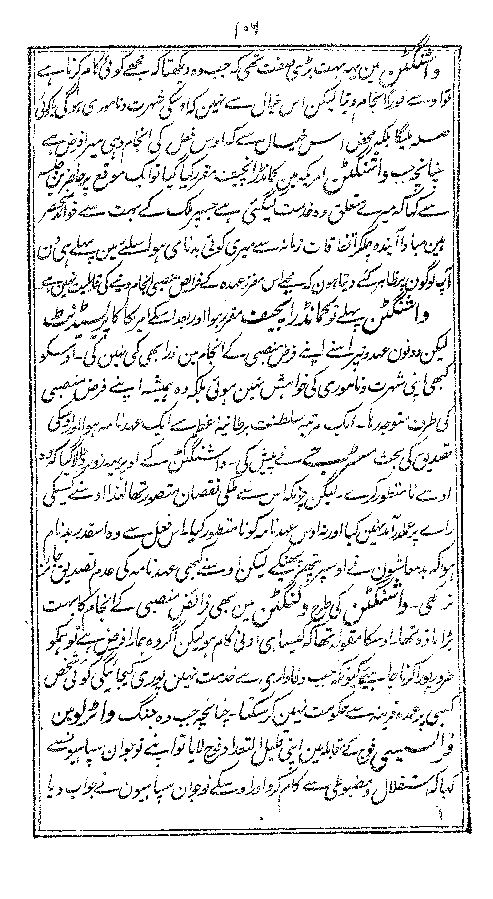 ۱۰۶
واشنگٹن مین یہ بہت بڑی صفت تھی کہ جب وہ دیکھتا کہ مجھے کوئی کام کرنا ہے
تو اوسے فوراً انجام دیتا لیکن اس خیال سے نہین کہ اوسکی شہرت و ناموری ہوگی یا کوئی
صلہ ملیگا بلکہ محض اس خیال سے کہ اوس فرض کی انجام دہی میرا فرض ہے
چنانچہ جب واشنگٹن امریکہ مین کمانڈر انچیف مقرر کیا گیا تو ایک موقع پر
سے کہا کہ میرے متعلق وہ خدمت کیگئی ہے جسپر ملک کے بہت سے فوائد منحصر
ہین مبادا آیندہ چلکر اتفاقات زمانہ سے میری کوئی بدنامی ہو اسلئے مین پہلے ہی ن
آپ لوگون پر ظاہر کئے دیتا ہون کہ مجھے اس مقرر عہدہ کے فرائض منصبی انجام دینے کی قابلیت نہین ہے
واشنگٹن پہلے تو کمانڈر انچیف مقرر ہوا اور بعد اسکے امریکا کا پریسیڈنٹ
لیکن دونون عہدونپر اسنے اپنے فرض منصبی کے انجام مین ذرا بھی کمی نہین کی۔ اوسکو
کبھی اپنی شہرت و ناموری کی خواہش نہین ہوئی بلکہ وہ ہمیشہ اپنے فرض منصبی
کی طرف متوجہ رہا۔ ایک مرتبہ سلطنت برطانیہ عظمے سے ایک عہدنامہ ہوا اور اوسکی
تصدیق کی بحث نے پیش کی۔ واشنگٹن کے اوپر بہت زور ڈالا گیا کہ وہ
اوسے نامنظور کرے۔ لیکن چونکہ اس سے ملکی نقصان متصور تھا لہذا اوسنے کسیکی
راے پر عملدرآمد نہین کیا اور نہ اوس عہدنامہ کو نامنظور کیا۔ اس فعل سے وہ اسقدر بدنام
ہوا کہ بدمعاشون نے اوسپر پتھر پھینکے لیکن اوسنے کبھی عہدنامہ کی عدم تصدیق جائز
نرکھی۔ واشنگٹن کی طرح ولنگٹن مین بھی فرائض منصبی کے انجام کا بہت
بڑا مادہ تھا۔ اوسکا مقولہ تھا کہ کیسا ہی ادنی کام ہو لیکن اگر وہ ہمارا فرض ہے تو ہمکو
ضرور پورا کرنا چاہیے کیونکہ جب وفاداری سے خدمت نہین پوری کیجائیگی کوئی شخص
کسی پر عمدہ قرینہ سے حکومت نہین کر سکتا۔ چنانچہ جب وہ جنگ واٹرلو مین
فرانسیسی فوج کے مقابلہ مین اپنی قلیل التعداد فوج لایا تو اپنے نوجوان سپاہیونسے
کہا کہ استقلال و مضبوطی سے کام کرو اور اوسکے نوجوان سپاہیون نے جواب دیا